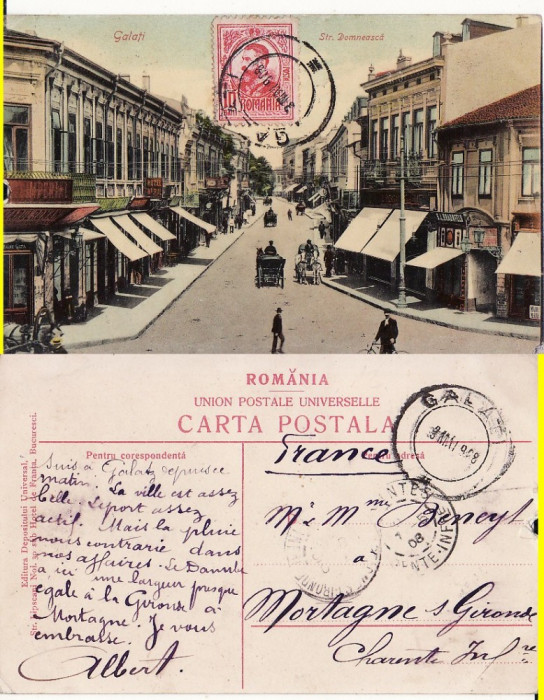 Galați
Str. Domnească
10
ROMANIA
ROMÂNIA
UNION POSTALE UNIVERSELLE
CARTA POSTALA
Pentru corespondentă
Pentru adresă
Editura Depositului Universal,
Hotel de Franta, Bucuresci.
GALATI
France
Suis à Galatz depuis ce
matin. La ville est assez
belle, le port assez
actif. Mais la pluie
nous contrarie dans
nos affaires. Le Danube
a ici une largeur presque
égale à la Gironde à
Mortagne. Je vous
embrasse.
Albert.
M. & Mme
à
Mortagne s/ Gironde
Charente Infre